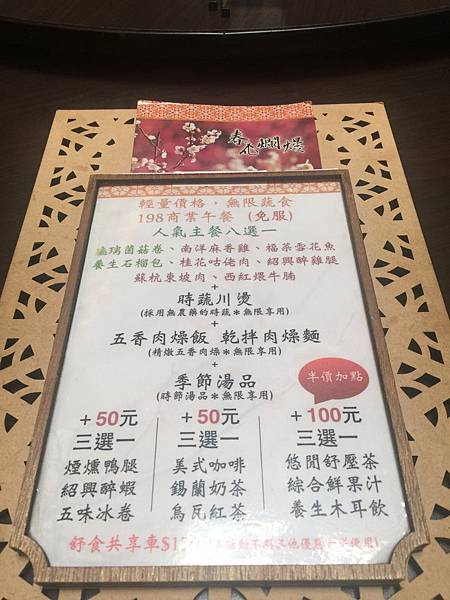 春花爛燦
輕量價格，無限蔬食
198商業午餐（免服）
人氣主餐八選一
琉璃菌菇卷、南洋麻香雞、福菜雪花魚
養生石榴包、桂花咕佬肉、紹興醉雞腿
蘇杭東坡肉、西紅煨牛腩
+
時蔬川燙
(採用無農藥的時蔬＊無限享用)
+
五香肉燥飯 乾拌肉燥麵
(精燉五香肉燥＊無限享用)
+
季節湯品
(時節湯品＊無限享用)
半價加點
+50元 +50元 +100元
三選一 三選一 三選一
煙燻鴨腿 美式咖啡 悠閒舒壓茶
紹興醉蝦 錫蘭奶茶 綜合鮮果汁
五味冰卷 烏瓦紅茶 養生木耳飲
舒食共享車$1